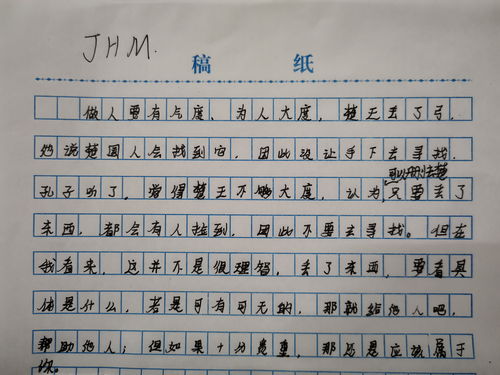 JHM.
稿 纸
做人要有气度、为人大度，楚王丢了弓，
他说楚国人会找到它，因此没让手下去寻找．
可以删去楚
孔子听了，觉得楚王不够大度，认为，只要丢了
东西，都会有人捡到，因此不要去寻找。但在
我看来，这并不是很理智，丢了东西，要看具
体是什么，若是可有可无的，那就给他人吧，
帮助他人；但如果十分贵重，那还是应该属于
你。